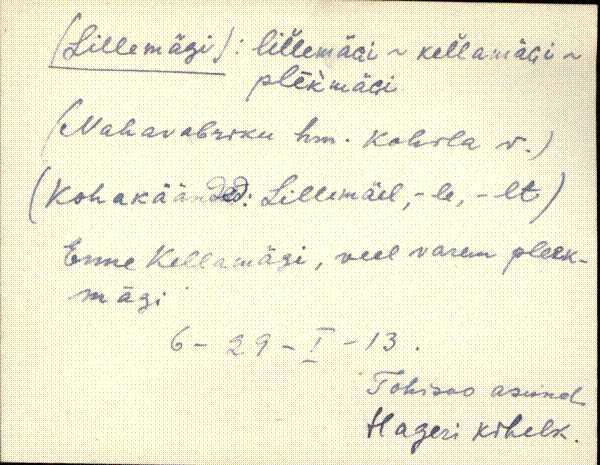 (Lillemägi): lìllemäGi ~ keĺlamäGi ~
plēkmäGi
(Nahavabriku hm. Kohila v.)
(Kohakäänded: Lillemäel, -le, -lt)
Enne Kellamägi, veel varem pleek-
mägi
6 - 29 - I - 13.
Tohisoo asund.
Hageri kihelk.